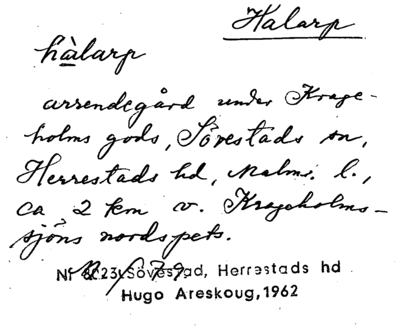 Halarp
hàlarp
arrendegård under Krage-
holms gods, Sövestads sn,
Herrestads hd, Malm. l.,
ca 2 km v. Krageholms-
sjöns nordspets.
Sövestad, Herrestads hd
Hugo Areskoug, 1962